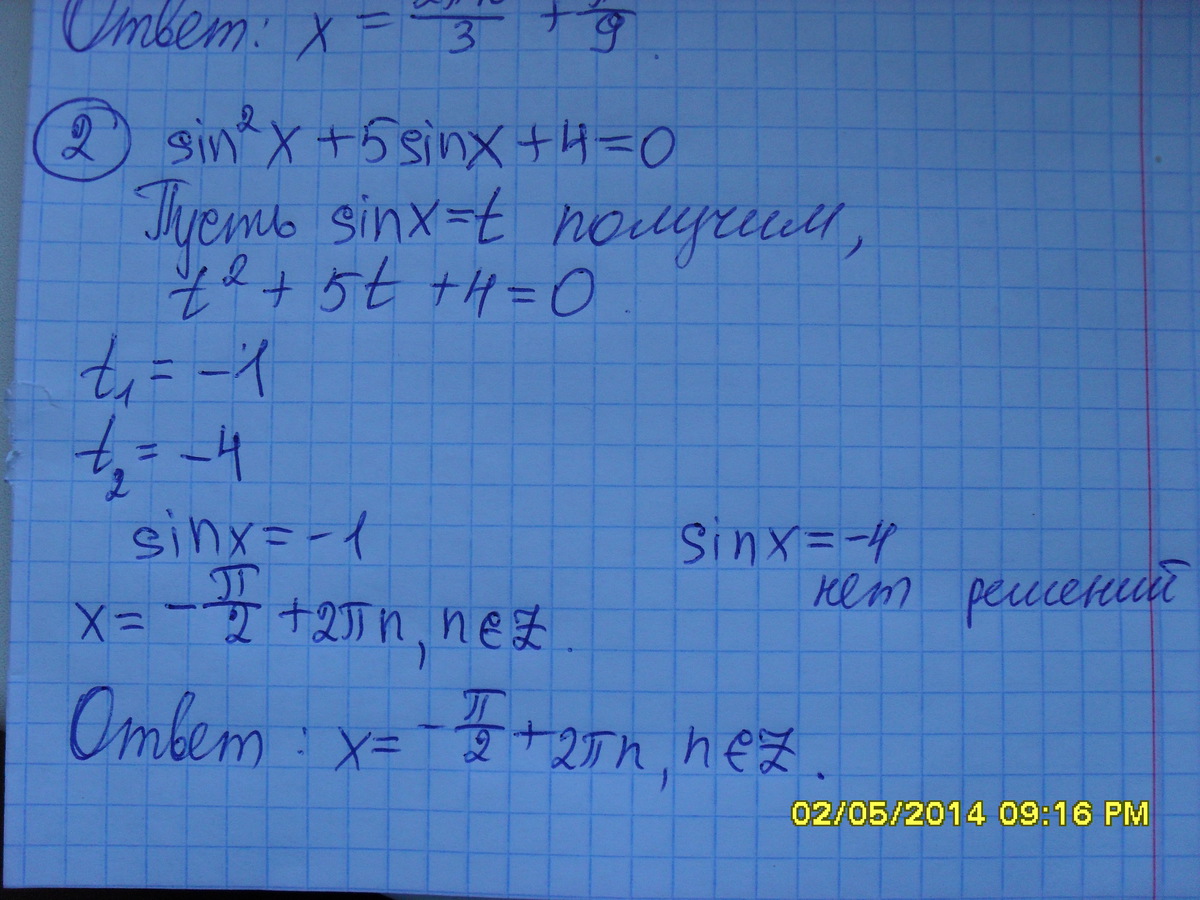 Ответ: x = /3 + /9.
2 sin²x + 5sinx + 4 = 0
Пусть sinx = t получим,
t² + 5t + 4 = 0
t₁ = -1
t₂ = -4
sinx = -1 sinx = -4
нет решений
x = -π/2 + 2πn, n∈Z.
Ответ: x = -π/2 + 2πn, n∈Z.
02/05/2014 09:16 PM